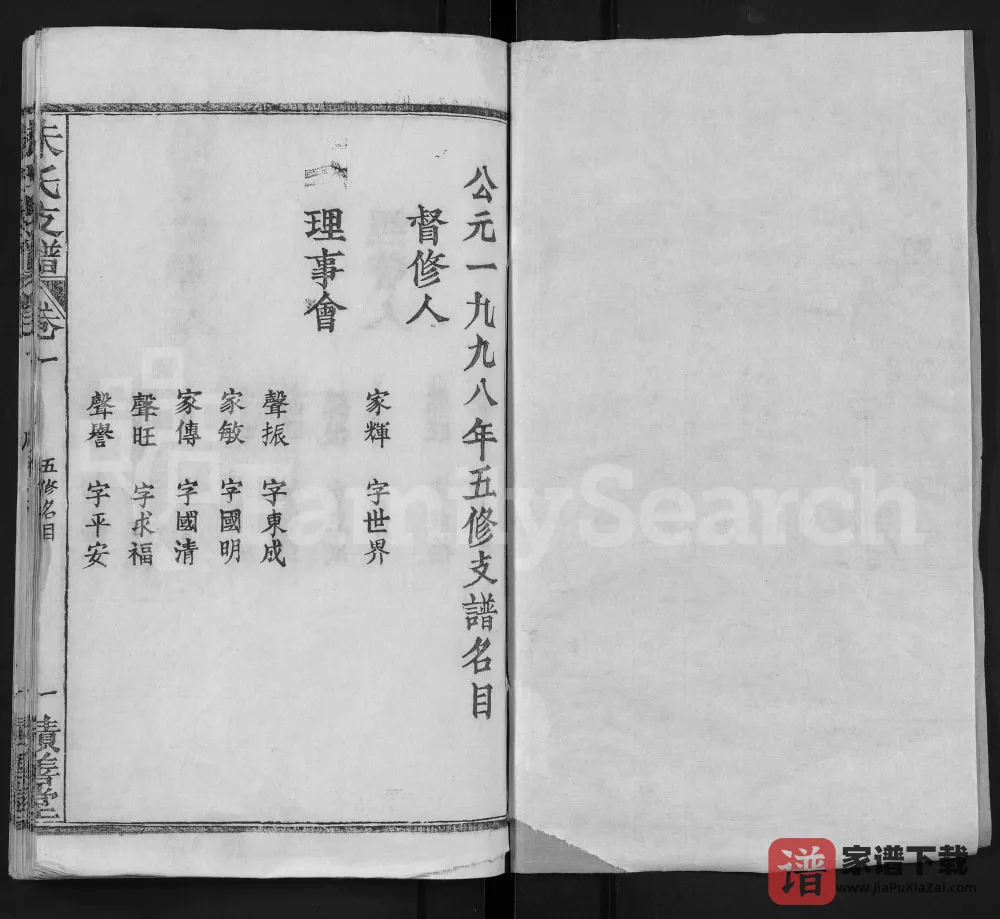 公元一九九八年五修支譜名目
督修人
家輝 字世界
理事會
聲振 字東成
家敏 字國明
家傳 字國清
聲旺 字求福
聲譽 字平安
朱氏支譜 卷一 五修名目 一 積善堂
FamilySearch
谱 家谱下载
www.JiaPuXiaZai.com